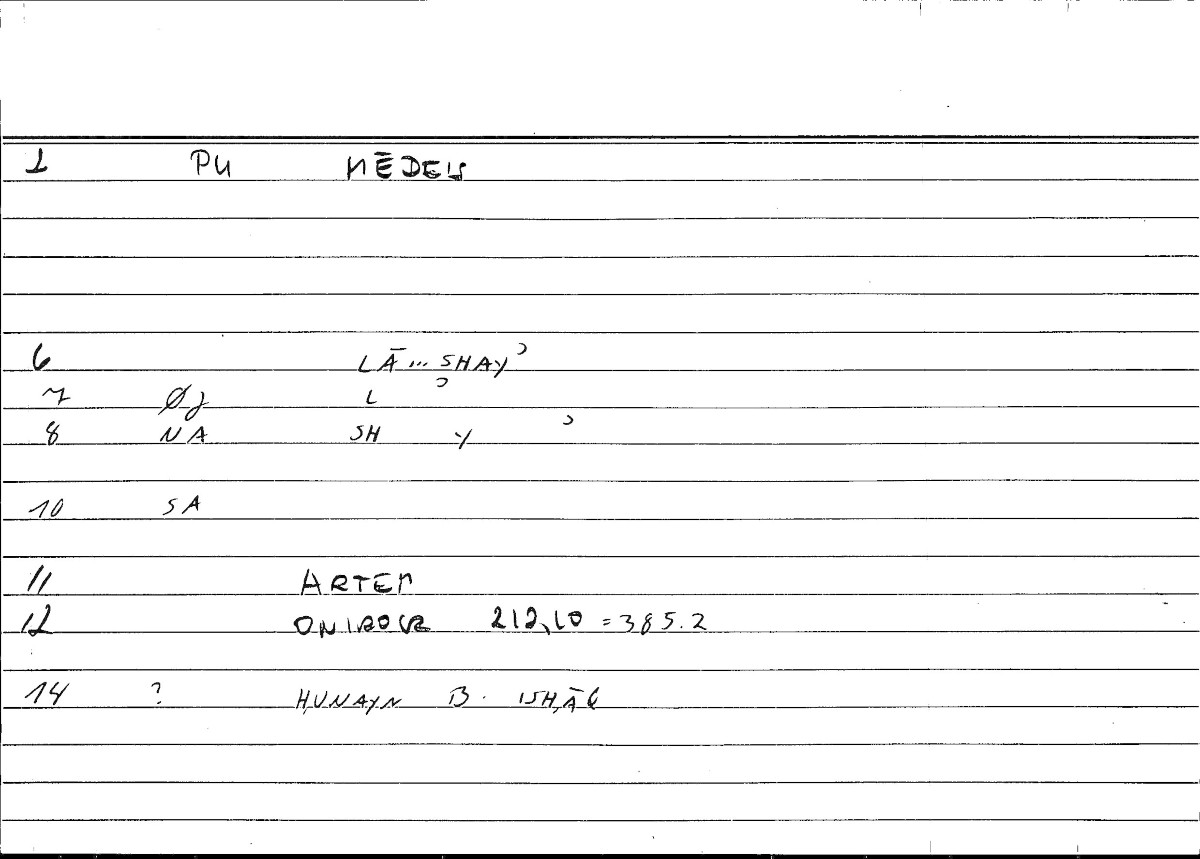 1 PU MĒDEIS
6 LĀ... SHAYʾ
7 ØJ L ʾ
8 NA SH Y ʾ
10 SA
11 ARTEM
12 ONIROCR 212,10 = 385.2
14 ? ḤUNAYN B. ISḤĀQ